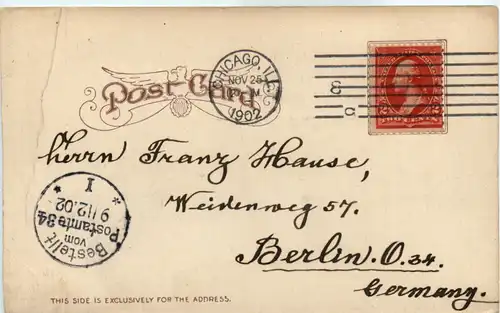 Post Card
CHICAGO, ILL.
NOV 25
1902
TWO CENTS
Herrn Franz Hause,
Weidenweg 57.
Berlin. O. 34.
Germany.
Bestellt
vom
Postamte 34
9/12.02
I
THIS SIDE IS EXCLUSIVELY FOR THE ADDRESS.